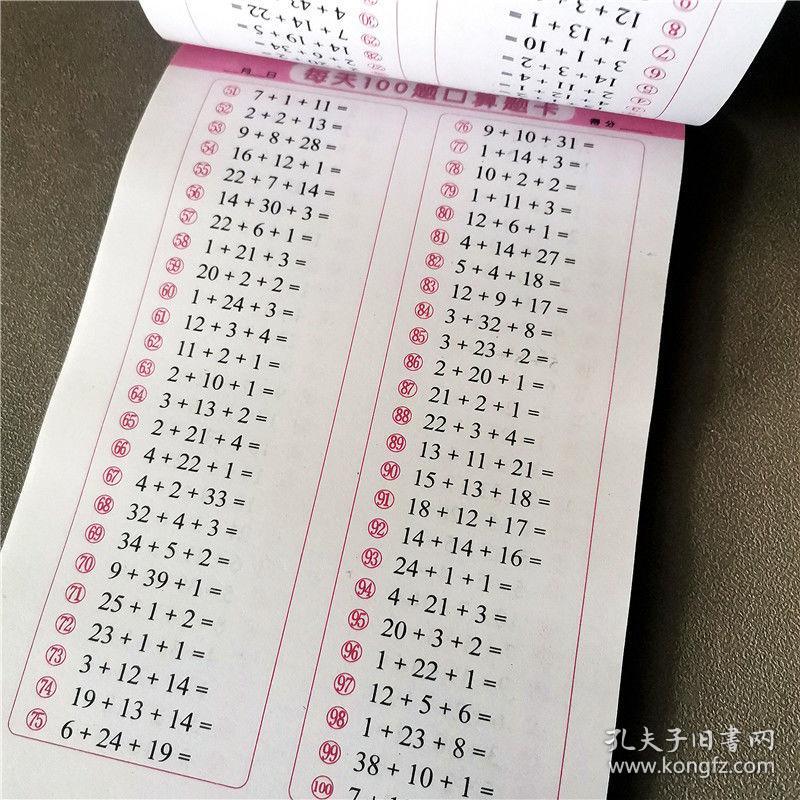 每天100题口算题卡
月 日
得分
㊿+1 7 + 1 + 11 =
52 2 + 2 + 13 =
53 9 + 8 + 28 =
54 16 + 12 + 1 =
55 22 + 7 + 14 =
56 14 + 30 + 3 =
57 22 + 6 + 1 =
58 1 + 21 + 3 =
59 20 + 2 + 2 =
60 1 + 24 + 3 =
61 12 + 3 + 4 =
62 11 + 2 + 1 =
63 2 + 10 + 1 =
64 3 + 13 + 2 =
65 2 + 21 + 4 =
66 4 + 22 + 1 =
67 4 + 2 + 33 =
68 32 + 4 + 3 =
69 34 + 5 + 2 =
70 9 + 39 + 1 =
71 25 + 1 + 2 =
72 23 + 1 + 1 =
73 3 + 12 + 14 =
74 19 + 13 + 14 =
75 6 + 24 + 19 =
76 9 + 10 + 31 =
77 1 + 14 + 3 =
78 10 + 2 + 2 =
79 1 + 11 + 3 =
80 12 + 6 + 1 =
81 4 + 14 + 27 =
82 5 + 4 + 18 =
83 12 + 9 + 17 =
84 3 + 32 + 8 =
85 3 + 23 + 2 =
86 2 + 20 + 1 =
87 21 + 2 + 1 =
88 22 + 3 + 4 =
89 13 + 11 + 21 =
90 15 + 13 + 18 =
91 18 + 12 + 17 =
92 14 + 14 + 16 =
93 24 + 1 + 1 =
94 4 + 21 + 3 =
95 20 + 3 + 2 =
96 1 + 22 + 1 =
97 12 + 5 + 6 =
98 1 + 23 + 8 =
99 38 + 10 + 1 =
100 7 +
孔夫子旧书网
www.kongfz.com